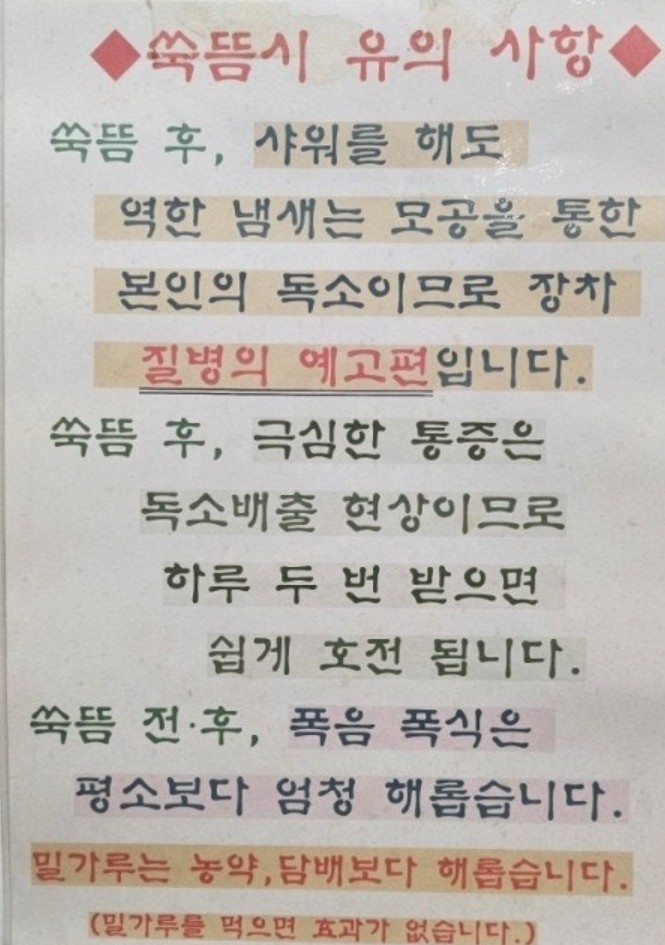 ◆쑥뜸시 유의 사항◆
쑥뜸 후, 샤워를 해도
역한 냄새는 모공을 통한
본인의 독소이므로 장차
질병의 예고편입니다.
쑥뜸 후, 극심한 통증은
독소배출 현상이므로
하루 두 번 받으면
쉽게 호전 됩니다.
쑥뜸 전·후, 폭음 폭식은
평소보다 엄청 해롭습니다.
밀가루는 농약,담배보다 해롭습니다.
(밀가루를 먹으면 효과가 없습니다.)